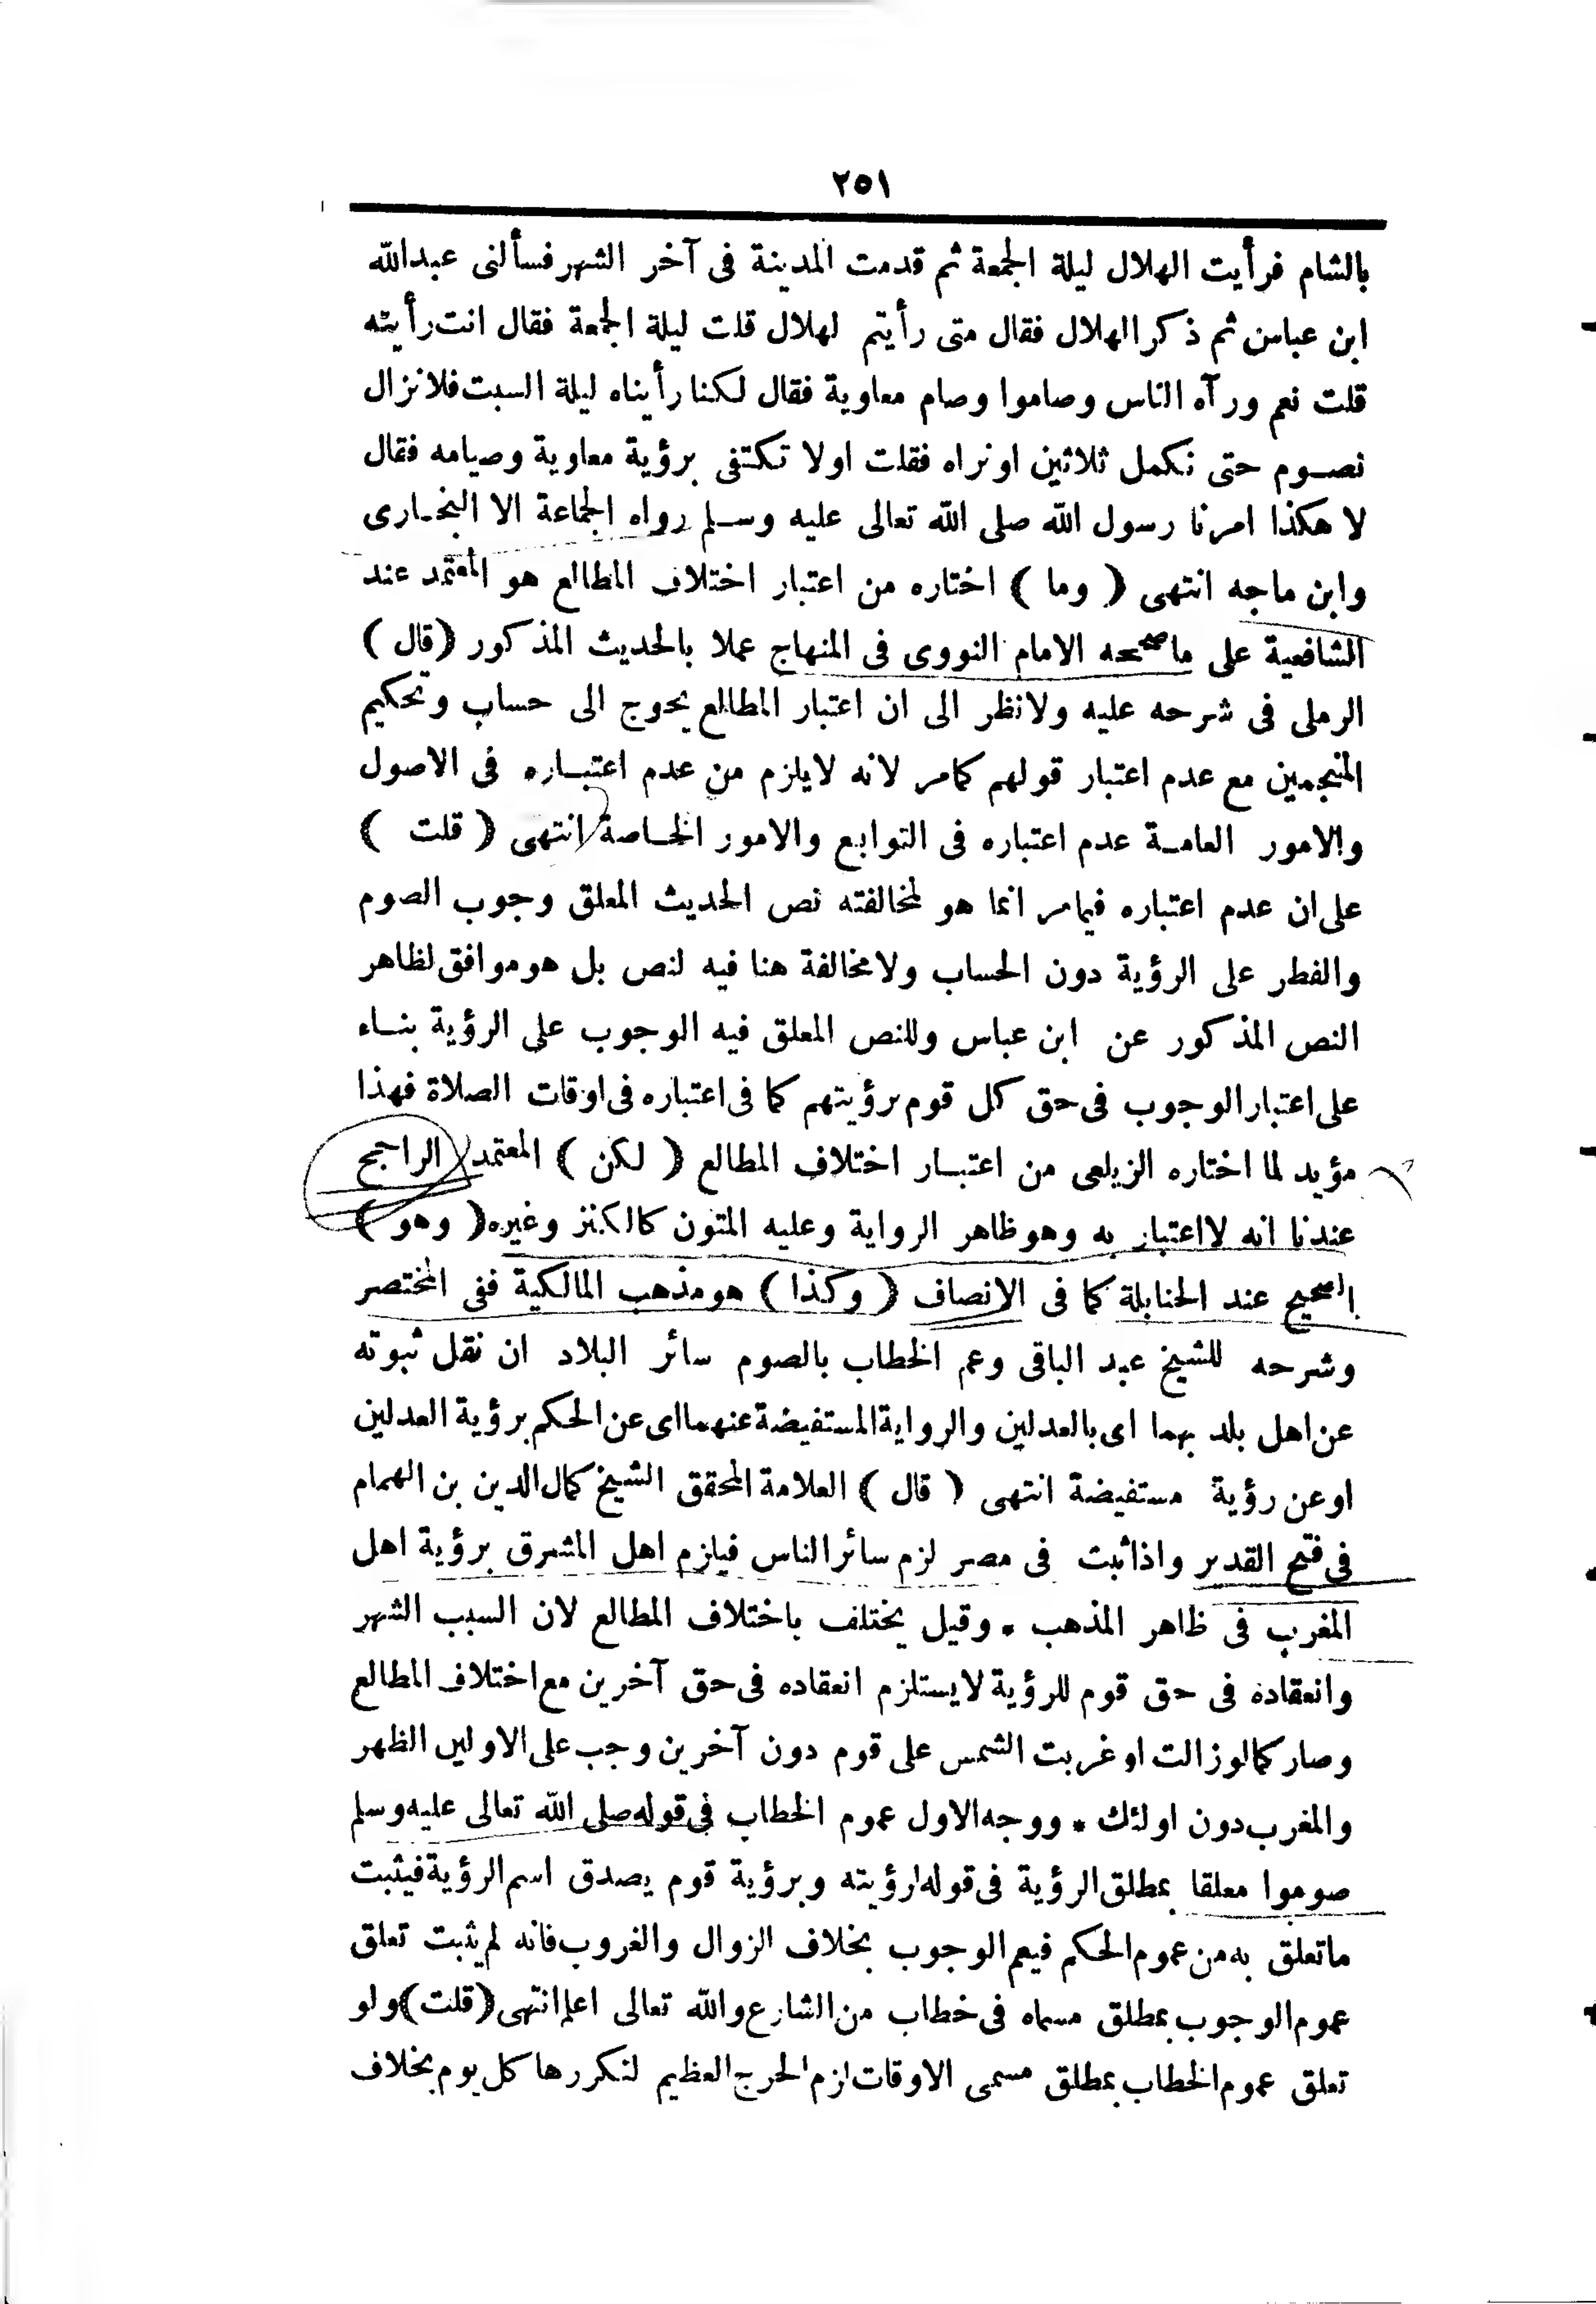 ٢٥١
بالشام فرأيت الهلال ليلة الجمعة ثم قدمت المدينة فى آخر الشهر فسألنى عبدالله
ابن عباس ثم ذكر الهلال فقال متى رأيتم لهلال قلت ليلة الجمعة فقال انت رأيته
قلت نعم ورآه الناس وصاموا وصام معاوية فقال لكنا رأيناه ليلة السبت فلا نزال
نصوم حتى نكمل ثلاثين او نراه فقلت اولا تكتفى برؤية معاوية وصيامه فقال
لا هكذا امرنا رسول الله صلى الله تعالى عليه وسلم رواه الجماعة الا البخارى
وابن ماجه انتهى ( وما ) اختاره من اعتبار اختلاف المطالع هو المعتمد عند
الشافعية على ماصححه الامام النووى فى المنهاج عملا بالحديث المذكور (قال )
الرملى فى شرحه عليه ولانظر الى ان اعتبار المطالع يحوج الى حساب وتحكيم
المنجمين مع عدم اعتبار قولهم كمامر لانه لايلزم من عدم اعتباره فى الاصول
والامور العامة عدم اعتباره فى التوابع والامور الخاصة انتهى ( قلت )
على ان عدم اعتباره فيمامر انما هو لمخالفته نص الحديث المعلق وجوب الصوم
والفطر على الرؤية دون الحساب ولامخالفة هنا فيه لنص بل هو موافق لظاهر
النص المذكور عن ابن عباس وللنص المعلق فيه الوجوب على الرؤية بناء
على اعتبار الوجوب فى حق كل قوم برؤيتهم كما فى اعتباره فى اوقات الصلاة فهذا
مؤيد لما اختاره الزيلعى من اعتبار اختلاف المطالع ( لكن ) المعتمد الراجح
عندنا انه لااعتبار به وهو ظاهر الرواية وعليه المتون كالكنز وغيره ( وهو )
الصحيح عند الحنابلة كما فى الانصاف ( وكذا ) هو مذهب المالكية ففى المختصر
وشرحه للشيخ عبد الباقى وعم الخطاب بالصوم سائر البلاد ان نقل ثبوته
عن اهل بلد بهما اى بالعدلين والرواية المستفيضة عنهما اى عن الحكم برؤية العدلين
او عن رؤية مستفيضة انتهى ( قال ) العلامة المحقق الشيخ كمال الدين بن الهمام
فى فتح القدير واذا ثبت فى مصر لزم سائر الناس فيلزم اهل المشرق برؤية اهل
المغرب فى ظاهر المذهب * وقيل يختلف باختلاف المطالع لان السبب الشهر
وانعقاده فى حق قوم للرؤية لايستلزم انعقاده فى حق آخرين مع اختلاف المطالع
وصار كمالو زالت او غربت الشمس على قوم دون آخرين وجب على الاولين الظهر
والمغرب دون اولئك * ووجه الاول عموم الخطاب فى قوله صلى الله تعالى عليه وسلم
صوموا معلقا بمطلق الرؤية فى قوله لرؤيته وبرؤية قوم يصدق اسم الرؤية فيثبت
ماتعلق به من عموم الحكم فيعم الوجوب بخلاف الزوال والغروب فانه لم يثبت تعلق
عموم الوجوب بمطلق مسماه فى خطاب من الشارع والله تعالى اعلم انتهى ( قلت ) ولو
تعلق عموم الخطاب بمطلق مسمى الاوقات لزم الحرج العظيم لتكررها كل يوم بخلاف